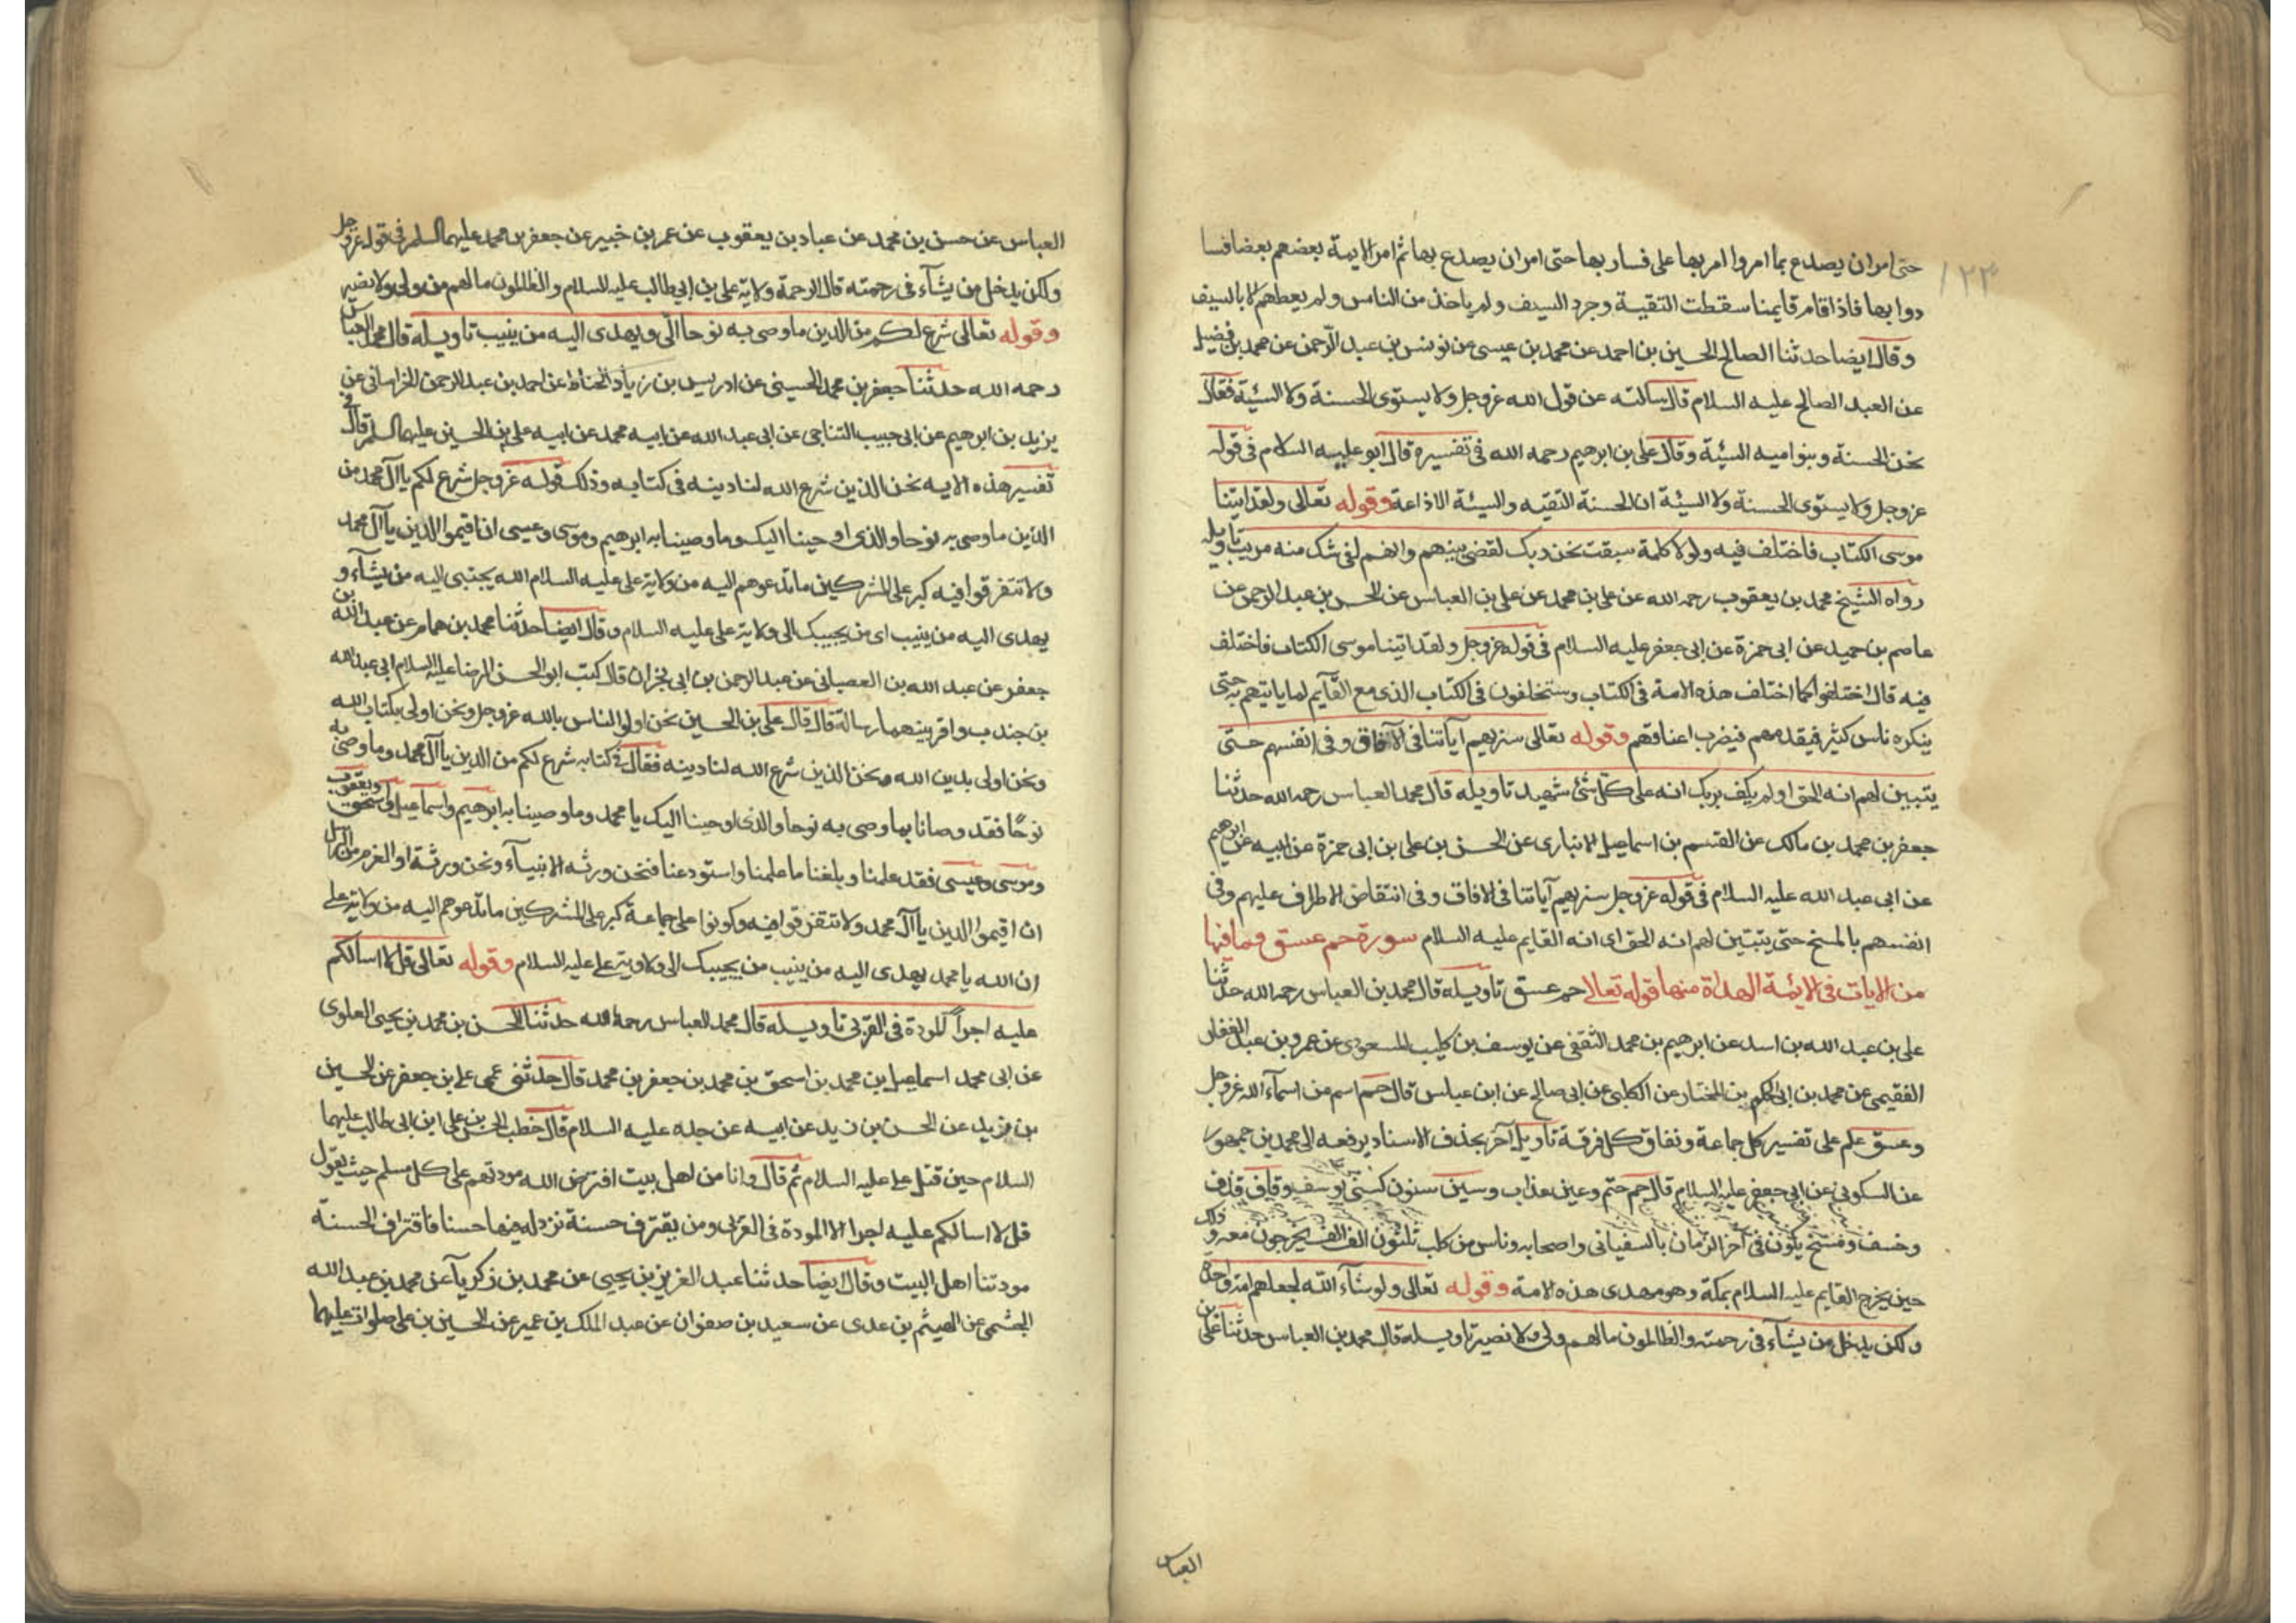 ١٢٣
حتى امر ان يصدع بما امروا امر بها على فسار بها حتى امر ان يصدع بها ثم امر الايمة بعضهم بعضا فسا
دوا بها فاذا قام قايمنا سقطت التقية وجرد السيف ولم ياخذ من الناس ولم يعطهم الا بالسيف
وقال ايضا حدثنا الصالح الحسين بن احمد عن محمد بن عيسى عن يونس بن عبد الرحمن عن محمد بن فضيل
عن العبد الصالح عليه السلام قال سالته عن قول الله عز وجل ولا يستوى الحسنة ولا السيئة فقال
نحن الحسنة وبنو اميه السيئة وقال على بن ابرهيم رحمه الله فى تفسيره قال ابو عليه السلام فى قوله
عز وجل ولا يستوى الحسنة ولا السيئة ان الحسنة التقيه والسيئة الاذاعة وقوله تعالى ولقد اتينا
موسى الكتاب فاختلف فيه ولولا كلمة سبقت من ربك لقضى بينهم وانهم لفى شك منه مريب تاويله
رواه الشيخ محمد بن يعقوب رحمه الله عن على بن محمد عن على بن العباس عن الحسن بن عبد الرحمن عن
عاصم بن حميد عن ابى حمزة عن ابى جعفر عليه السلام فى قوله عز وجل ولقد اتينا موسى الكتاب فاختلف
فيه قال اختلفوا كما اختلف هذه الامة فى الكتاب وستخلفون فى الكتاب الذى مع القآيم لما ياتيهم به حتى
ينكره ناس كثير فيقدمهم فيضرب اعناقهم وقوله تعالى سنريهم آياتنا فى الآفاق وفى انفسهم حتى
يتبين لهم انه الحق اولم يكف بربك انه على كل شئ شهيد تاويله قال محمد العباس رحمه الله حدثنا
جعفر بن محمد بن مالك عن القسم بن اسماعيل الانبارى عن الحسن بن على بن ابى حمزة عن ابيه عن ابرهيم
عن ابى عبد الله عليه السلام فى قوله عز وجل سنريهم آياتنا فى الافاق وفى انتقاض الاطراف عليهم وفى
انفسهم بالمسخ حتى يتبين لهم انه الحق اى انه القايم عليه السلام سورة حم عسق وما فيها
من الايات فى الائمة الهداة منها قوله تعالى حم عسق تاويله قال محمد بن العباس رحمه الله حدثنا
على بن عبد الله بن اسد عن ابرهيم بن محمد الثقفى عن يوسف بن كليب المسعودى عن عمرو بن عبد الغفار
الفقيمى عن محمد بن ابى الحكم بن المختار عن الكلبى عن ابى صالح عن ابن عباس قال حم اسم من اسمآء الله عز وجل
وعسق علم على تفسير كل جماعة ونفاق كل فرقة تاويل آخر بحذف الاسناد يرفعه الى محمد بن جمهور
عن السكونى عن ابى جعفر عليه السلام قال حم حتم وعين عذاب وسين سنون كسنى يوسف وقاف قذف
وخسف ومسخ يكون فى آخر الزمان بالسفيانى واصحابه وناس من كلب ثلثون الف الف يخرجون معه وذلك
حين يخرج القايم عليه السلام بمكة وهو مهدى هذه الامة وقوله تعالى ولو شآء الله لجعلهم امة واحدة
ولكن يدخل من يشآء فى رحمته والظالمون مالهم ولى ولا نصير تاويله قال محمد بن العباس حدثنا على بن
العباس
العباس عن حسن بن محمد عن عباد بن يعقوب عن عمر بن خبير عن جعفر بن محمد عليهما السلم فى قوله عز وجل
ولكن يدخل من يشآء فى رحمته قال الرحمة ولاية على بن ابى طالب عليه السلام والظالمون مالهم من ولى ولا نصير
وقوله تعالى شرع لكم من الدين ما وصى به نوحا الى ويهدى اليه من ينيب تاويله قال محمد العباس
رحمه الله حدثنا جعفر بن محمد الحسينى عن ادريس بن زياد الحناط عن احمد بن عبد الرحمن الخراسانى عن
يزيد بن ابرهيم عن ابى حبيب النتاجى عن ابى عبد الله عن ابيه محمد عن ابيه على بن الحسين عليهما السلم قال فى
تفسير هذه الايه نحن الذين شرع الله لنا دينه فى كتابه وذلك قوله عز وجل شرع لكم يا آل محمد من
الدين ما وصى به نوحا والذى اوحينا اليك وما وصينا به ابرهيم وموسى وعيسى ان اقيموا الدين يا آل محمد
ولا تتفرقوا فيه كبر على المشركين ما تدعوهم اليه من ولاية على عليه السلام الله يجتبى اليه من يشآء و
يهدى اليه من ينيب اى من يجيبك الى ولاية على عليه السلام وقال ايضا حدثنا محمد بن همام عن عبد الله بن
جعفر عن عبد الله بن العصبانى عن عبد الرحمن بن ابى نجران قال كتب ابو الحسن الرضا عليه السلام ابى عبد الله
بن جندب واقرينهما رسالة قال قال على بن الحسين نحن اولى الناس بالله عز وجل ونحن اولى بكتاب الله
ونحن اولى بدين الله ونحن الذين شرع الله لنا دينه فقال فى كتابه شرع لكم من الدين يا آل محمد وما وصى به
نوحًا فقد وصانا بما وصى به نوحا والذى اوحينا اليك يا محمد وما وصينا به ابرهيم واسماعيل واسحق ويعقوب
وموسى وعيسى فقد علمنا وبلغنا ما علمنا واستودعنا فنحن ورثه الانبيآء ونحن ورثة اولو العزم من الرسل
ان اقيموا الدين يا آل محمد ولا تتفرقوا فيه وكونوا على جماعة كبر على المشركين ما تدعوهم اليه من ولاية على
ان الله يا محمد يهدى اليه من ينيب من يجيبك الى ولاية على عليه السلام وقوله تعالى قل لا اسالكم
عليه اجراً المودة فى القربى تاويله قال محمد العباس رحمة الله حدثنا الحسن بن محمد بن يحيى العلوى
عن ابى محمد اسماعيل بن محمد بن اسحق بن محمد بن جعفر بن محمد قال حدثنى عمى على بن جعفر عن الحسين
بن يزيد عن الحسن بن زيد عن ابيه عن جده عليه السلام قال خطب الحسن بن على ابن ابى طالب عليهما
السلام حين قتل على عليه السلام ثم قال وانا من اهل بيت افترض الله مودتهم على كل مسلم حيث يقول
قل لا اسالكم عليه اجرا الا المودة فى القربى ومن يقترف حسنة نزد له فيها حسنا فاقتراف الحسنة
مودتنا اهل البيت وقال ايضا حدثنا عبد العزيز بن يحيى عن محمد بن زكريآ عن محمد بن عبد الله
الجشمى عن الهيثم بن عدى عن سعيد بن صفوان عن عبد الملك بن عمير عن الحسين بن على صلوات عليهما